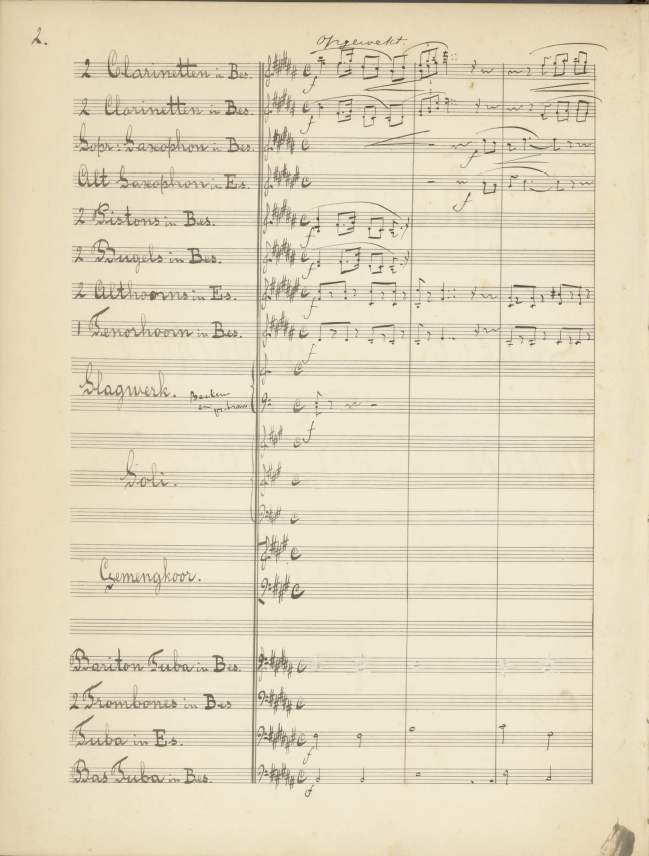 2.
opgewekt.
2 Clarinetten in Bes.
2 Clarinetten in Bes.
Sopr: Saxophon in Bes.
Alt Saxophon in Es.
2 Pistons in Bes.
2 Bugels in Bes.
2 Althoorns in Es.
1 Tenorhoorn in Bes.
Slagwerk. Becken
en gr. tram
Soli.
Gemengkoor.
Bariton Tuba in Bes.
2 Trombones in Bes
Tuba in Es.
Bas Tuba in Bes.